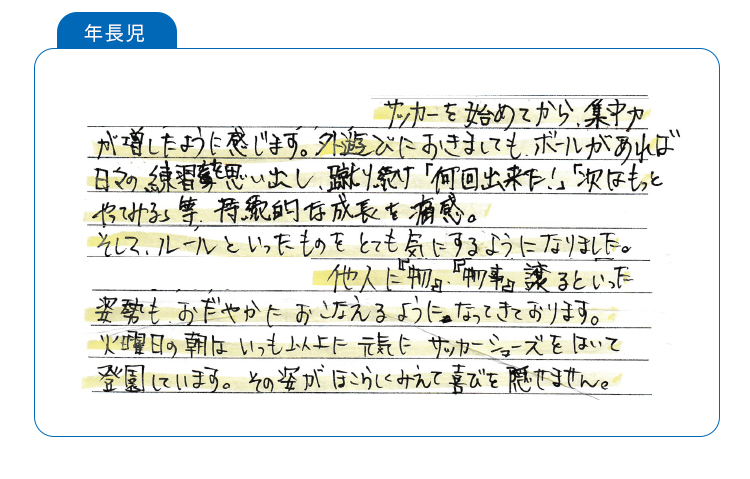 年長児
サッカーを始めてから、集中力
が増したように感じます。外遊びにおきましても、ボールがあれば
日々の練習を思い出し、蹴り続け「何回出来た!」「次はもっと
やってみる」等、持続的な成長を痛感。
そして、ルールといったものをとても気にするようになりました。
他人に『物』・『物事』譲るといった
姿勢も、おだやかにおこなえるように、なってきております。
火曜日の朝はいつも以上に元気にサッカーシューズをはいて
登園しています。その姿がほこらしくみえて喜びを隠せません。